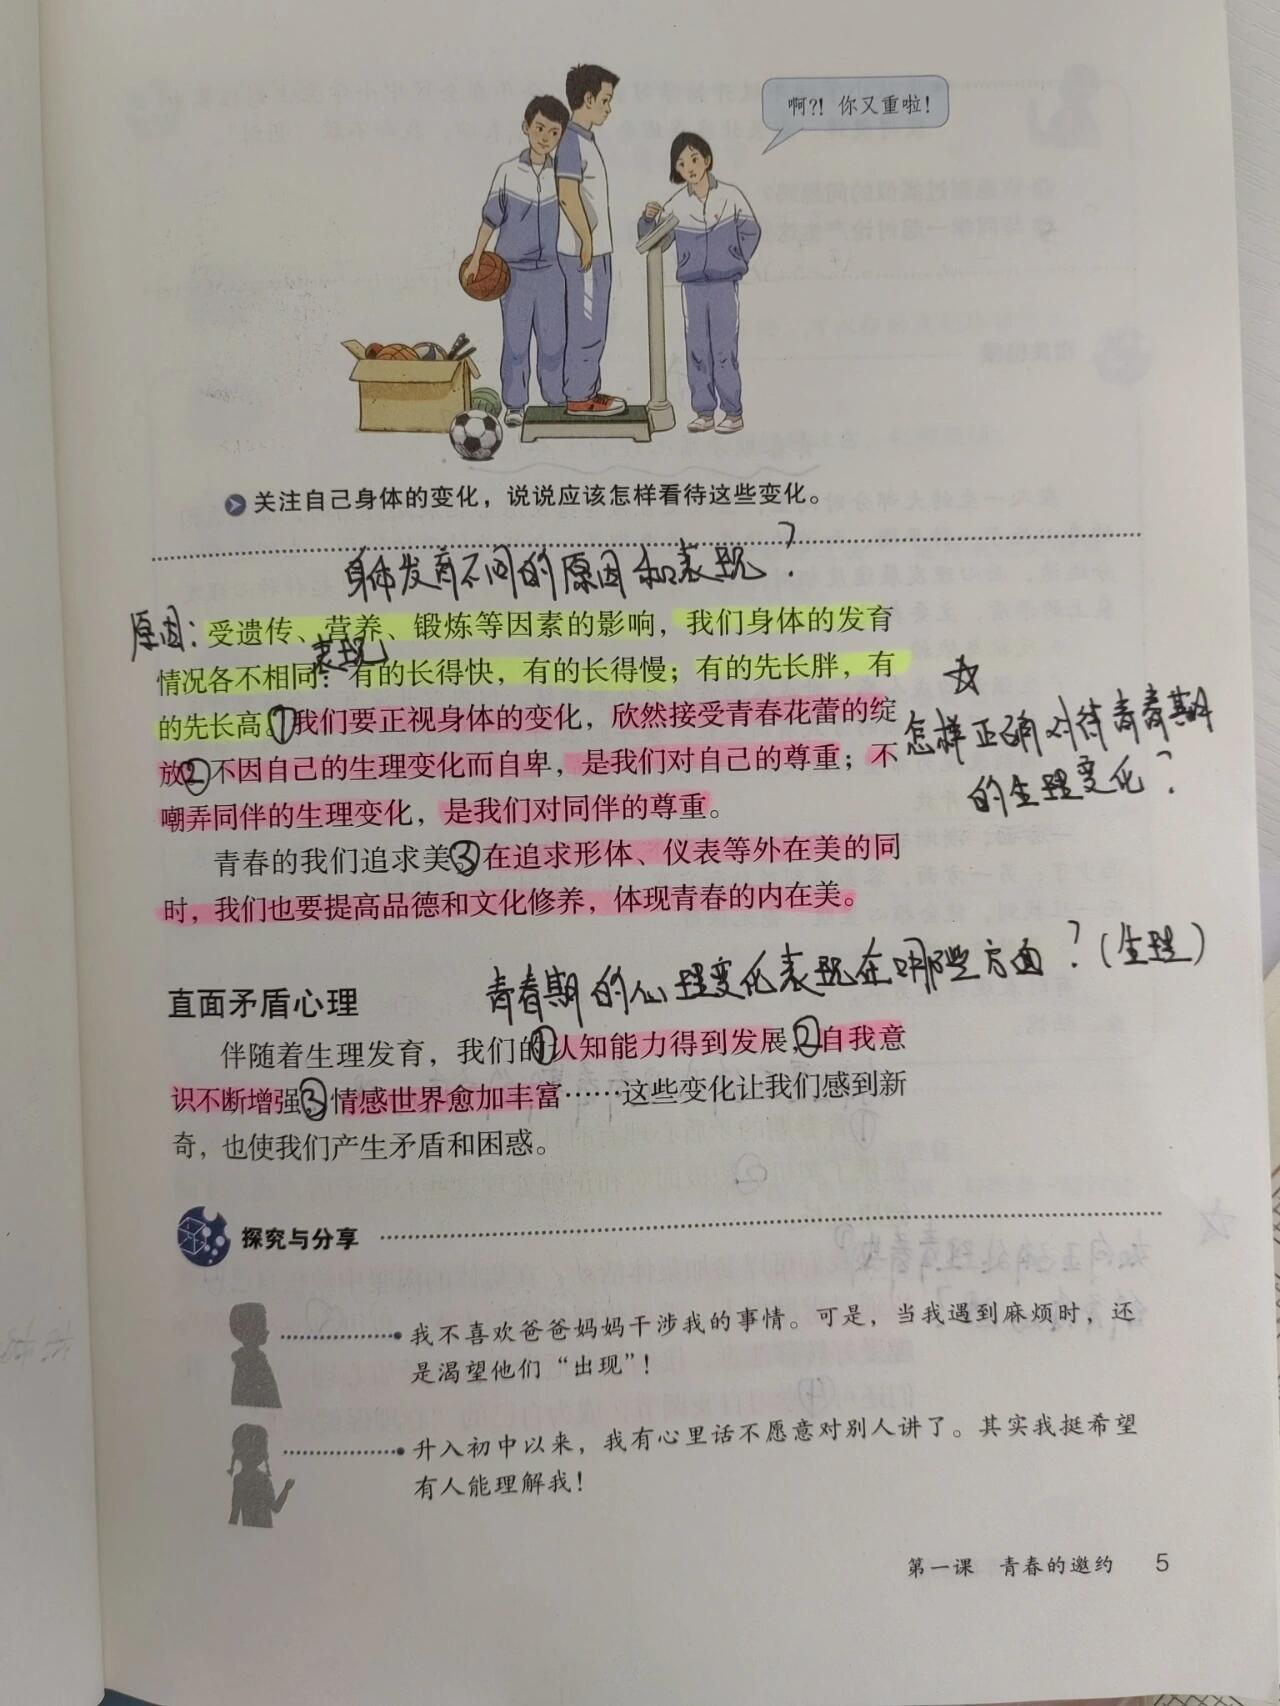 啊?！你又重啦！
关注自己身体的变化，说说应该怎样看待这些变化。
身体发育不同的原因和表现？
原因：受遗传、营养、锻炼等因素的影响，我们身体的发育
表现
情况各不相同：有的长得快，有的长得慢；有的先长胖，有
的先长高。①我们要正视身体的变化，欣然接受青春花蕾的绽
放②不因自己的生理变化而自卑，是我们对自己的尊重；不
嘲弄同伴的生理变化，是我们对同伴的尊重。
☆
怎样正确对待青春期
的生理变化？
青春的我们追求美③在追求形体、仪表等外在美的同
时，我们也要提高品德和文化修养，体现青春的内在美。
青春期的心理变化表现在哪些方面？（生理）
直面矛盾心理
伴随着生理发育，我们的①认知能力得到发展，②自我意
识不断增强，③情感世界愈加丰富……这些变化让我们感到新
奇，也使我们产生矛盾和困惑。
探究与分享
我不喜欢爸爸妈妈干涉我的事情。可是，当我遇到麻烦时，还
是渴望他们“出现”！
升入初中以来，我有心里话不愿意对别人讲了。其实我挺希望
有人能理解我！
第一课 青春的邀约 5